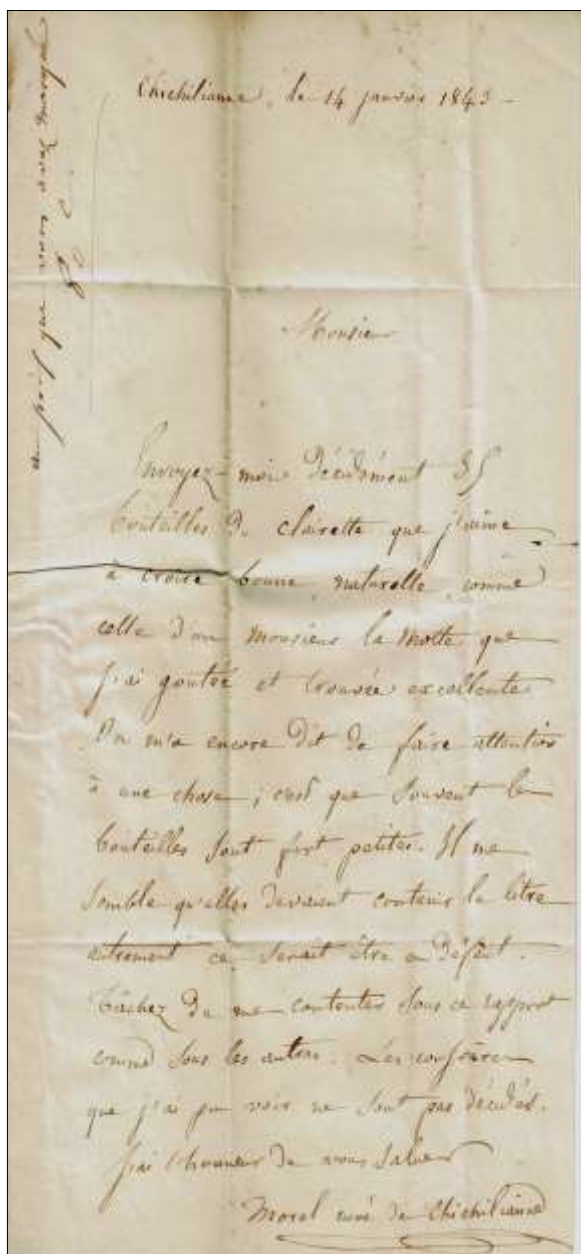 Chichilianne, le 14 janvier 1843 -
Monsieur
Envoyez-moi décidément 25
bouteilles de clairette que j'aime
à croire bonne, naturelle, comme
celle d'un monsieur la Motte que
j'ai goutée et trouvée excellente
On m'a encore dit de faire attention
à une chose ; c'est que souvent les
bouteilles sont fort petites. Il me
semble qu'elles devraient contenir le litre
autrement ce serait être en défaut.
Tâchez de me contenter sous ce rapport
comme sous les autres. Les confrères
que j'ai pu voir ne sont pas décidés.
J'ai l'honneur de vous saluer
Morel curé de Chichilianne